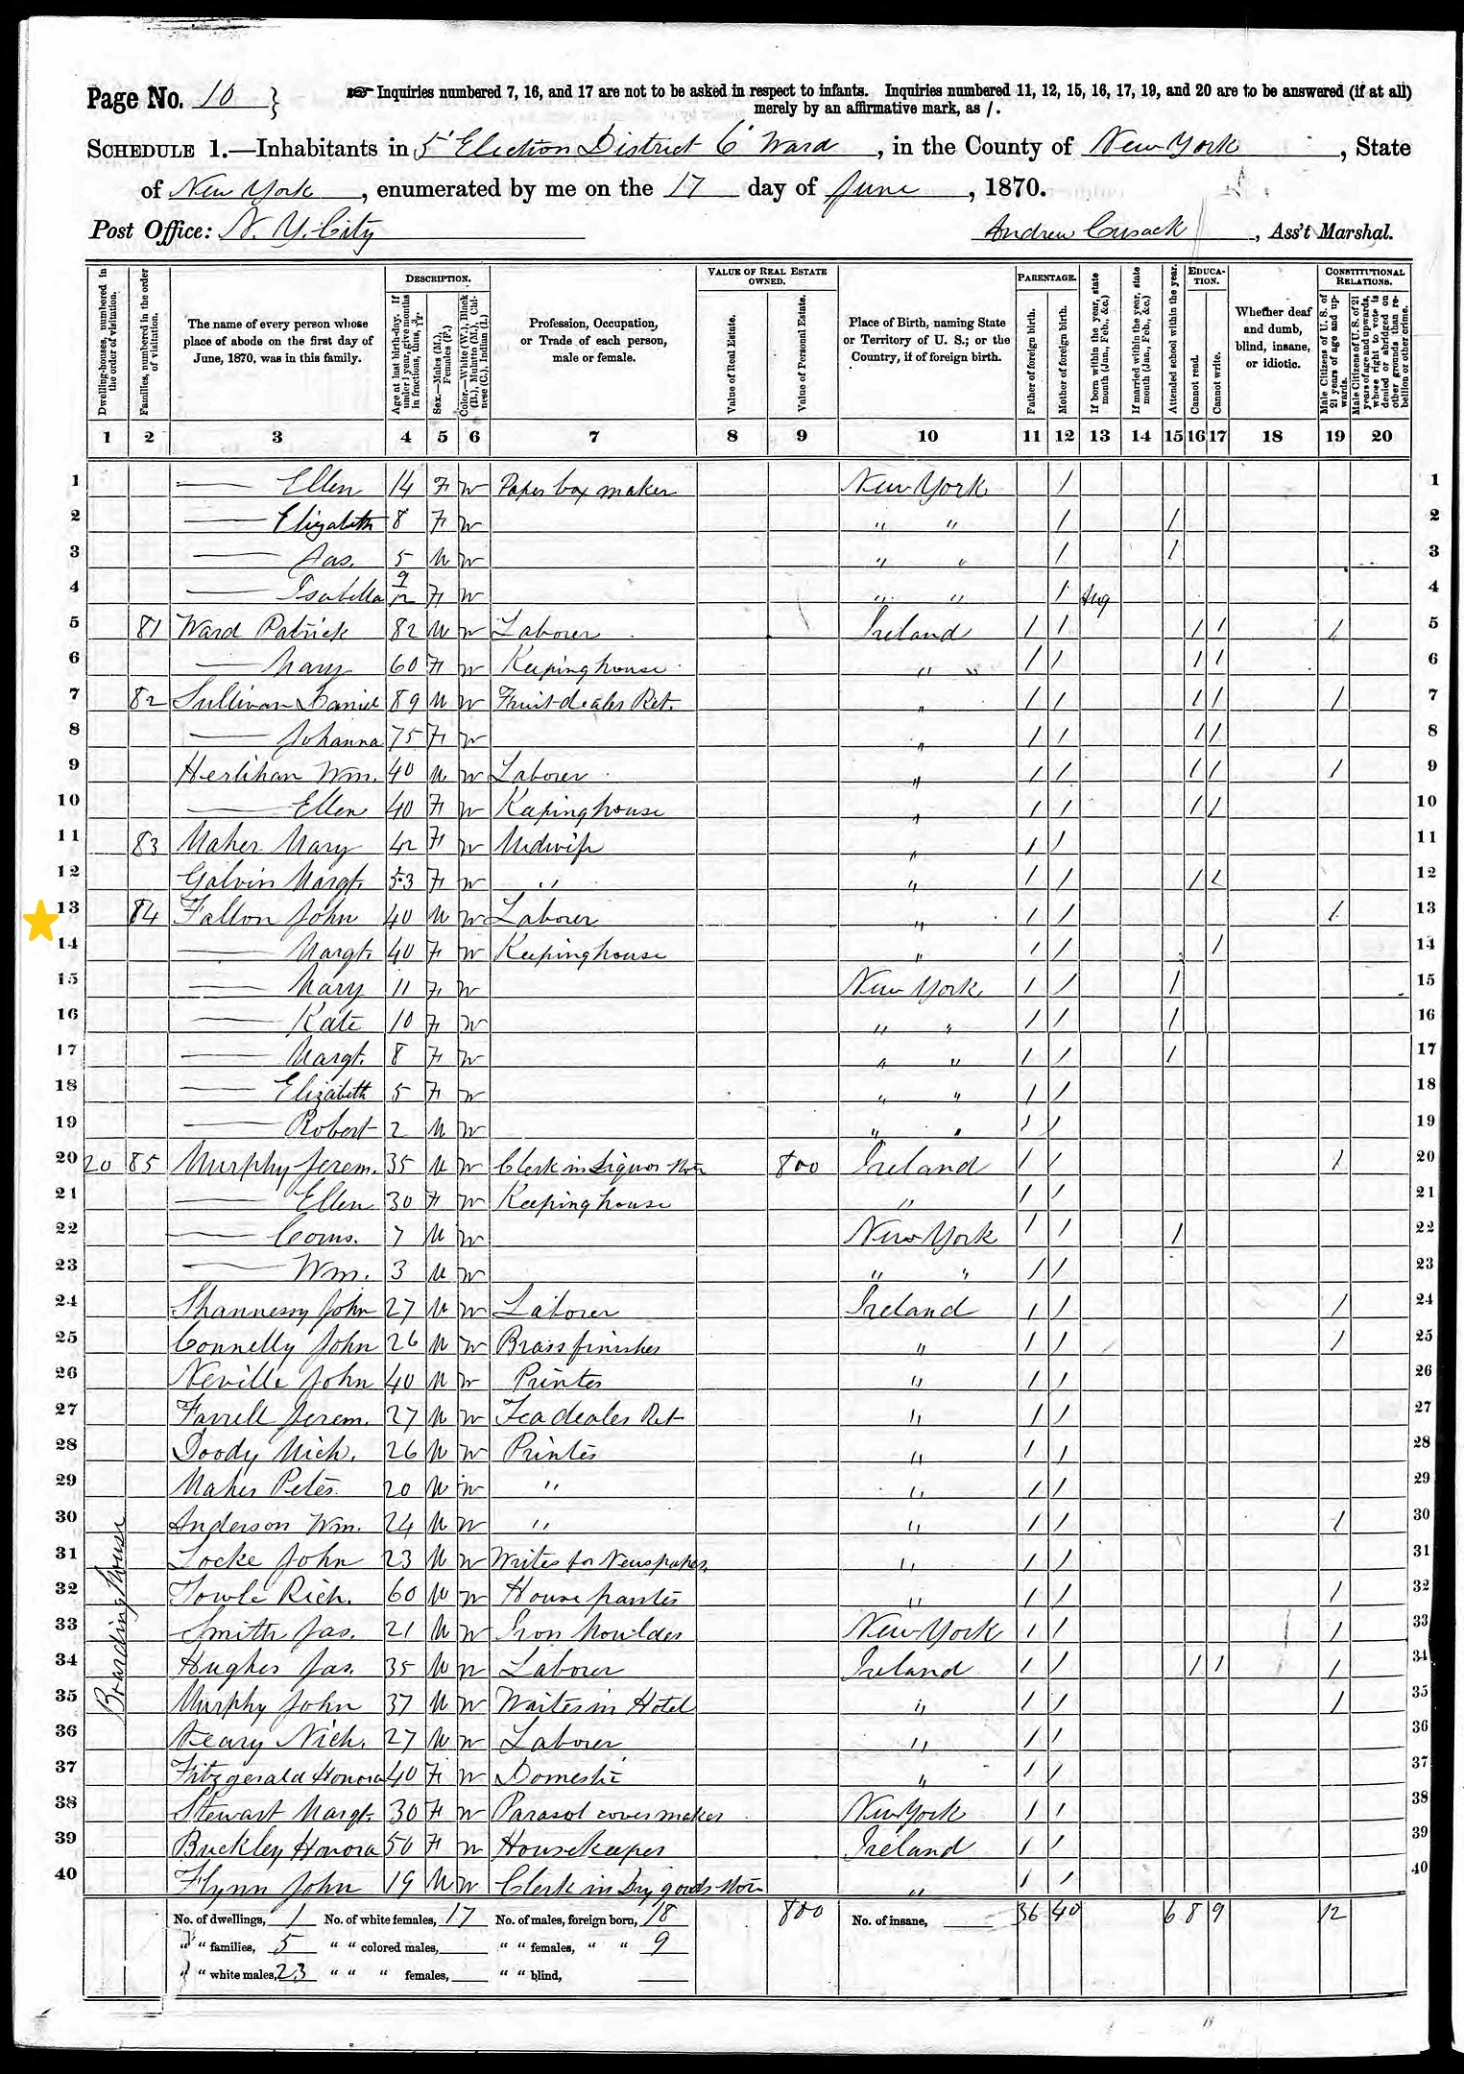 Page No. 10 }
Inquiries numbered 7, 16, and 17 are not to be asked in respect to infants. Inquiries numbered 11, 12, 15, 16, 17, 19, and 20 are to be answered (if at all)
merely by an affirmative mark, as /.
SCHEDULE 1.—Inhabitants in 5' Election District 6' Ward, in the County of New York, State
of New York, enumerated by me on the 17 day of June, 1870.
Post Office: N. Y. City Andrew Cusack, Ass't Marshal.
Dwelling-houses, numbered in the order of visitation.
Families, numbered in the order of visitation.
The name of every person whose place of abode on the first day of June, 1870, was in this family.
DESCRIPTION.
Age at last birth-day. If under 1 year, give months in fractions, thus, 3/12.
Sex.—Males (M.), Females (F.)
Color.—White (W.), Black (B.), Mulatto (M.), Chinese (C.), Indian (I.)
Profession, Occupation, or Trade of each person, male or female.
VALUE OF REAL ESTATE OWNED.
Value of Real Estate.
Value of Personal Estate.
Place of Birth, naming State or Territory of U. S.; or the Country, if of foreign birth.
PARENTAGE.
Father of foreign birth.
Mother of foreign birth.
If born within the year, state month (Jan., Feb., &c.)
If married within the year, state month (Jan., Feb., &c.)
Attended school within the year.
EDUCATION.
Cannot read.
Cannot write.
Whether deaf and dumb, blind, insane, or idiotic.
CONSTITUTIONAL RELATIONS.
Male Citizens of U. S. of 21 years of age and upwards.
Male Citizens of U. S. of 21 years of age and upwards, whose right to vote is denied or abridged on other grounds than rebellion or other crime.
1 2 3 4 5 6 7 8 9 10 11 12 13 14 15 16 17 18 19 20
1 —— Ellen 14 F W Paper box maker New York / 1
2 —— Elizabeth 8 F W " " / / 2
3 —— Jas. 5 M W " " / / 3
4 —— Isabella 9/12 F W " " / Aug 4
5 81 Ward Patrick 82 M W Laborer Ireland / / / / / 5
6 —— Mary 60 F W Keeping house " " / / / / 6
7 82 Sullivan Daniel 89 M W Fruit dealer Ret. " / / / / / 7
8 —— Johanna 75 F W " / / / / 8
9 Herlihan Wm. 40 M W Laborer " / / / / / 9
10 —— Ellen 40 F W Keeping house " / / / / 10
11 83 Maher Mary 42 F W Midwife " / / 11
12 Galvin Margt. 53 F W " " / / / / 12
13 84 Fallon John 40 M W Laborer " / / / 13
14 —— Margt. 40 F W Keeping house " / / / 14
15 —— Mary 11 F W New York / / / 15
16 —— Kate 10 F W " " / / / 16
17 —— Margt. 8 F W " " / / / 17
18 —— Elizabeth 5 F W " " / / 18
19 —— Robert 2 M W " " / / 19
20 20 85 Murphy Jerem. 35 M W Clerk in Liquor Store 800 Ireland / / / 20
21 —— Ellen 30 F W Keeping house " / / 21
22 —— Corns. 7 M W New York / / / 22
23 —— Wm. 3 M W " " / / 23
24 Shannessy John 27 M W Laborer Ireland / / / 24
25 Connelly John 26 M W Brass finisher " / / / 25
26 Neville John 40 M W Printer " / / 26
27 Farrell Jerem. 27 M W Tea dealer Ret " / / 27
28 Doody Mich. 26 M W Printer " / / 28
29 Maher Peter 20 M W " " / / 29
30 Anderson Wm. 24 M W " " / / / 30
31 Locke John 23 M W Writes for Newspaper " / / 31
32 Towle Rich. 60 M W House painter " / / / 32
33 Smith Jas. 21 M W Iron Moulder New York / / / 33
34 Hughes Jas. 35 M W Laborer Ireland / / / / / 34
35 Murphy John 37 M W Waiter in Hotel " / / / 35
36 Leary Mich. 27 M W Laborer " / / 36
37 Fitzgerald Honora 40 F W Domestic " / / 37
38 Stewart Margt. 30 F W Parasol cover maker New York / / 38
39 Buckley Honora 50 F W Housekeeper Ireland / / 39
40 Flynn John 19 M W Clerk in Dry goods Store " / / 40
Boarding House
No. of dwellings, 1 No. of white females, 17 No. of males, foreign born, 18 800 No. of insane, 36 40 6 8 9 12
" " families, 5 " " colored males, " " females, " " 9
" " white males, 23 " " " females, " " blind,